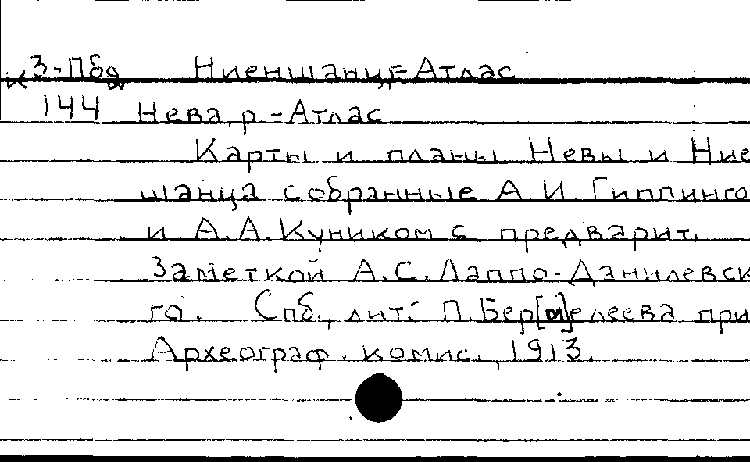 К3-Пбд Ниеншанц-Атлас
144 Нева, р-Атлас
Карты и планы Невы и Ние
шанца собранные А И Гиппинго
и А.А.Куником с предварит.
Заметкой А.С.Лаппо-Данилевск
го. Спб., лит. П.Бер[м]елеева при
Археограф. комис., 1913.